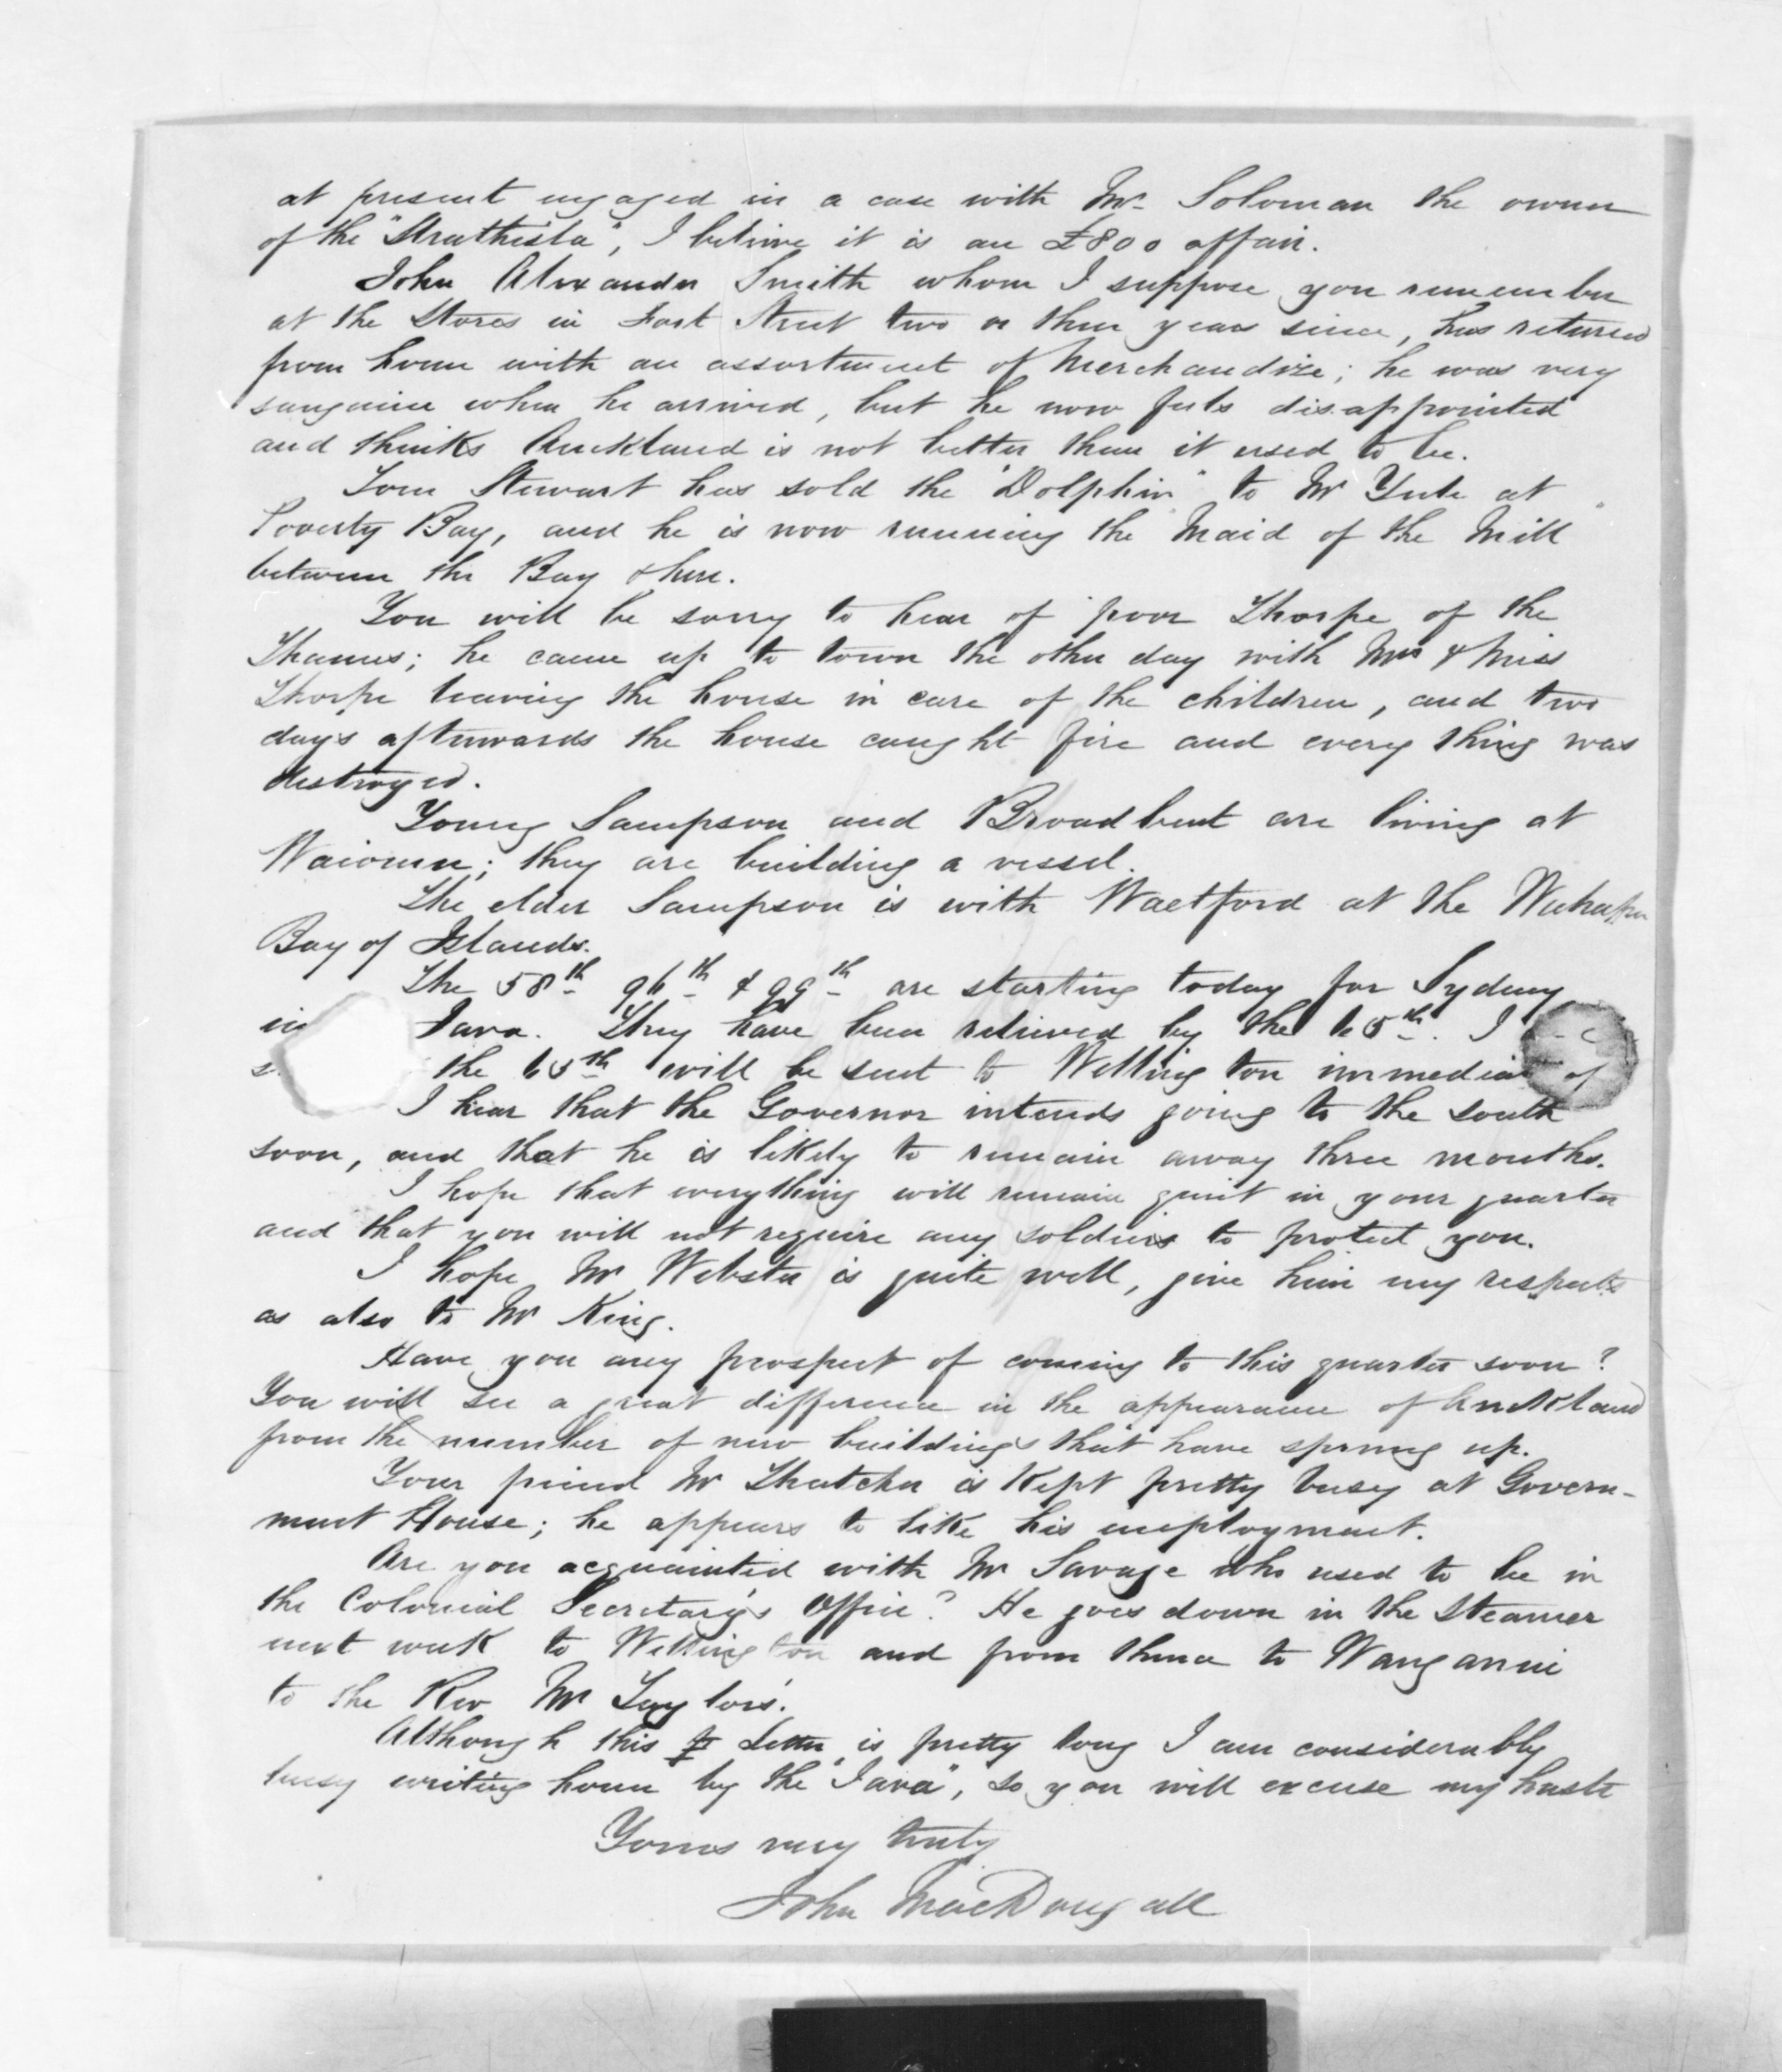 at present engaged in a case with Mr. Soloman the owner
of the "Strathisla", I believe it is an £800 affair.
John Alexander Smith whom I suppose you remember
at the Stores in Fort Street two or three years since, has returned
from home with an assortment of Merchandize; he was very
sanguine when he arrived, but he now feels disappointed
and thinks Auckland is not better than it used to be.
Tom Stewart has sold the "Dolphin" to Mr Yule at
Poverty Bay, and he is now running the Maid of the Mill"
between the Bay & here.
You will be sorry to hear of poor Thorpe of the
Thames; he came up to town the other day with Mrs & Miss
Thorpe leaving the house in care of the children, and two
days afterwards the house caught fire and every thing was
destroyed.
Young Sampson and Broadbent are living at
they are building a vessel.
The elder Sampson is with Waetford at the
Bay of Islands.
The 58th 96th & 99th are starting today for Sydney
in Java. They have been relieved by the 65th. I
the 65th will be sent to Wellington
I hear that the Governor intends going to the South
soon, and that he is likely to remain away three months.
I hope that everything will remain quiet in your quarter
and that you will not require any soldiers to protect you.
I hope Mr Webster is quite well, give him my respects
as also to Mr King.
Have you any prospect of coming to this quarter soon?
You will see a great difference in the appearance of Auckland
from the number of new buildings that have sprung up.
Your friend Mr Thatcher is kept pretty busy at Govern-
ment House; he appears to like his employment.
Are you acquainted with Mr Savage who used to be in
the Colonial Secretary's Office? He goes down in the Steamer
next week to Wellington and from thence to Wanganui
to the Rev Mr Taylors'.
Although this Letter is pretty long I am considerably
busy writing home by the "Java", so you will excuse my haste
Yours very truly
John MacDougall